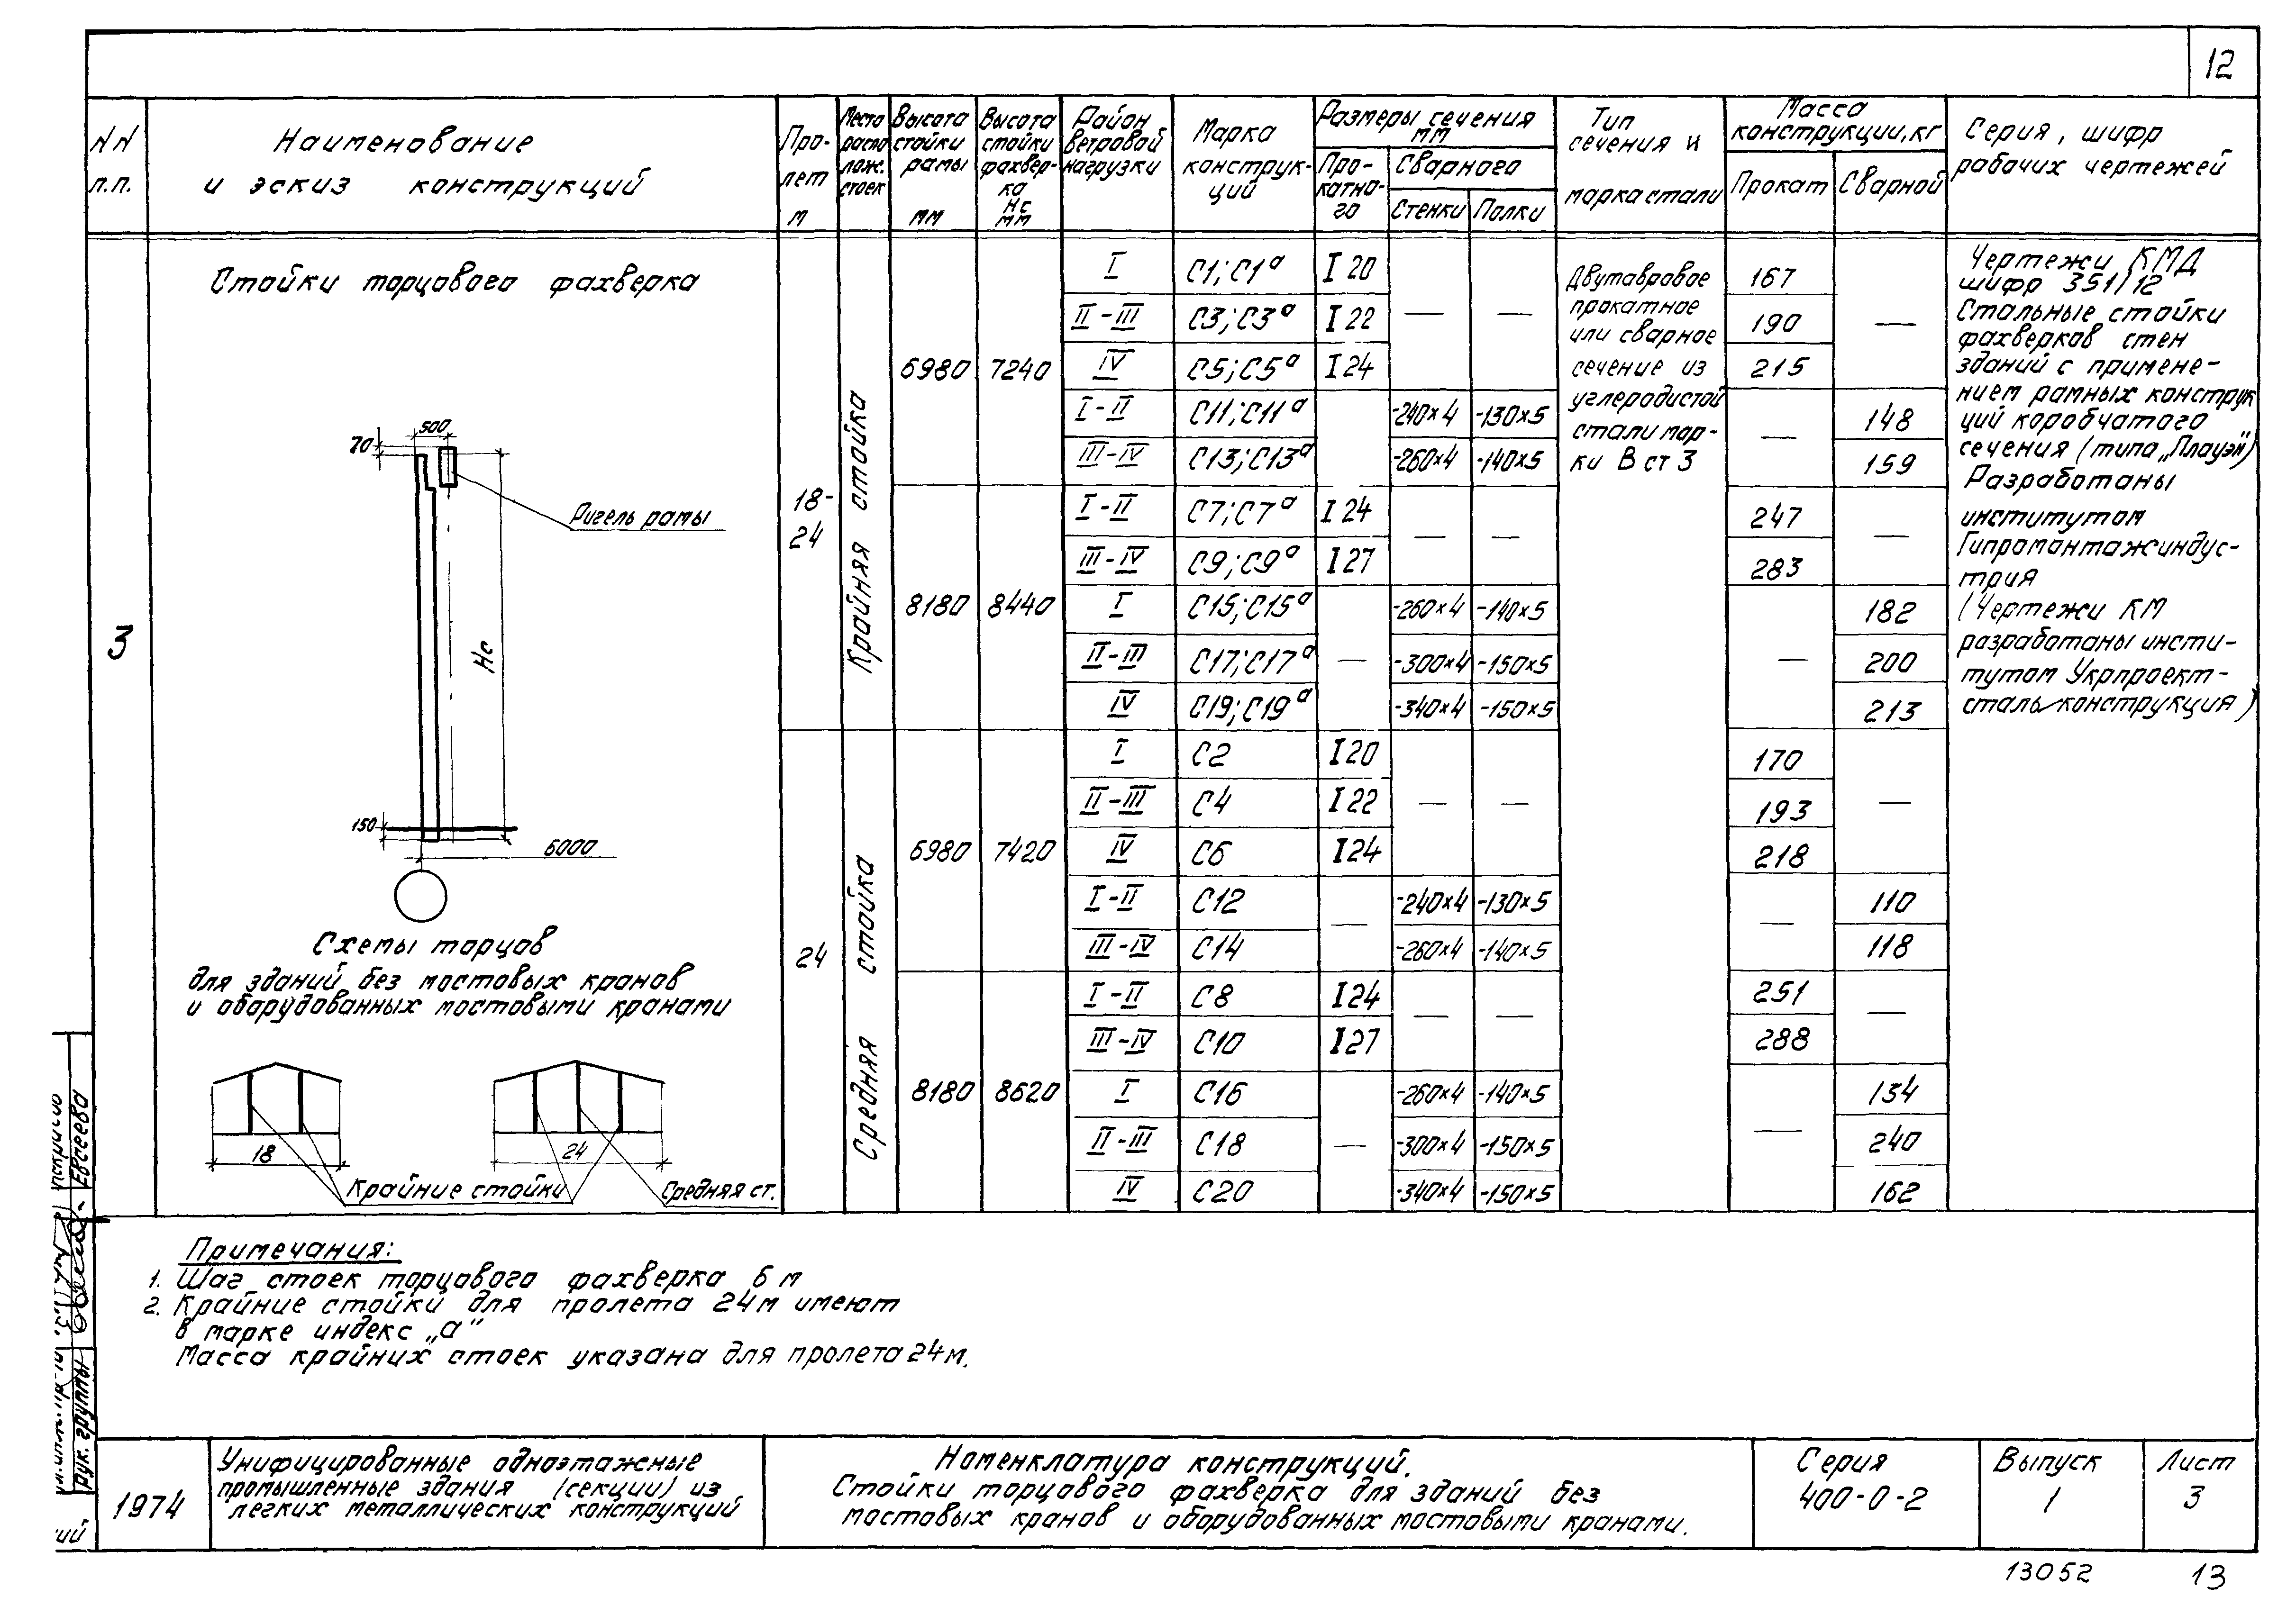 12
NN п.п.
Наименование и эскиз конструкций
Пролет м
Место располож. стоек
Высота стойки рамы мм
Высота стойки фахверка Нс мм
Район ветровой нагрузки
Марка конструкций
Размеры сечения мм
Прокатного
Сварного
Стенки
Полки
Тип сечения и марка стали
Масса конструкции, кг
Прокат
Сварной
Серия, шифр рабочих чертежей
3
Стойки торцового фахверка
500
70
Ригель рамы
Нс
150
6000
Схемы торцов
для зданий без мостовых кранов
и оборудованных мостовыми кранами
18
24
Крайние стойки
Средняя ст.
18-24
Крайняя стойка
6980 7240
I С1; С1а I 20 167
II-III С3; С3а I 22 — — 190 —
IV С5; С5а I 24 215
I-II С11; С11а -240×4 -130×5 — 148
III-IV С13; С13а -260×4 -140×5 159
8180 8440
I-II С7; С7а I 24 — — 247 —
III-IV С9; С9а I 27 283
I С15; С15а -260×4 -140×5 182
II-III С17; С17а — -300×4 -150×5 — 200
IV С19; С19а -340×4 -150×5 213
24
Средняя стойка
6980 7420
I С2 I 20 170
II-III С4 I 22 — — 193 —
IV С6 I 24 218
I-II С12 — -240×4 -130×5 — 110
III-IV С14 -260×4 -140×5 118
8180 8620
I-II С8 I 24 — — 251 —
III-IV С10 I 27 288
I С16 -260×4 -140×5 134
II-III С18 — -300×4 -150×5 — 240
IV С20 -340×4 -150×5 162
Двутавровое
прокатное
или сварное
сечение из
углеродистой
стали мар-
ки В ст 3
Чертежи КМД
шифр 351/12
Стальные стойки
фахверков стен
зданий с примене-
нием рамных конструк
ций коробчатого
сечения (типа „Плауэн")
Разработаны
институтом
Гипромонтажиндус-
трия
(Чертежи КМ
разработаны инсти-
тутом Укрпроект-
стальконструкция)
Примечания:
1. Шаг стоек торцового фахверка 6 м
2. Крайние стойки для пролета 24м имеют
в марке индекс „а"
Масса крайних стоек указана для пролета 24м.
Рук. группы
Евсеева
1974
Унифицированные одноэтажные
промышленные здания (секции) из
легких металлических конструкций
Номенклатура конструкций.
Стойки торцового фахверка для зданий без
мостовых кранов и оборудованных мостовыми кранами.
Серия
400-0-2
Выпуск
1
Лист
3
13052
13